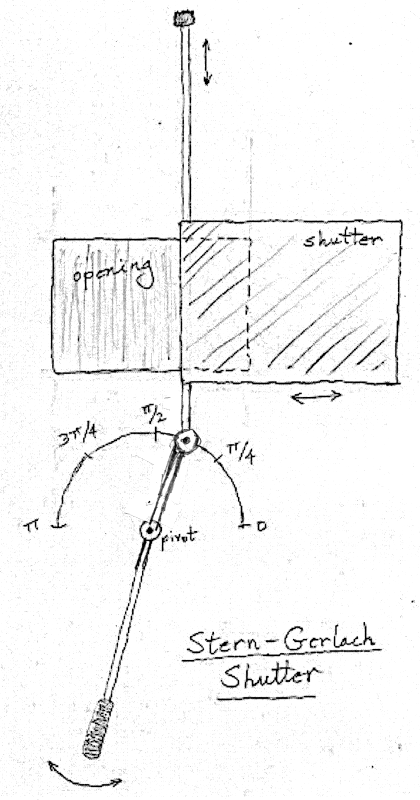 shutter
opening
π/2
3π/4
π/4
π
0
pivot
Stern-Gerlach
Shutter